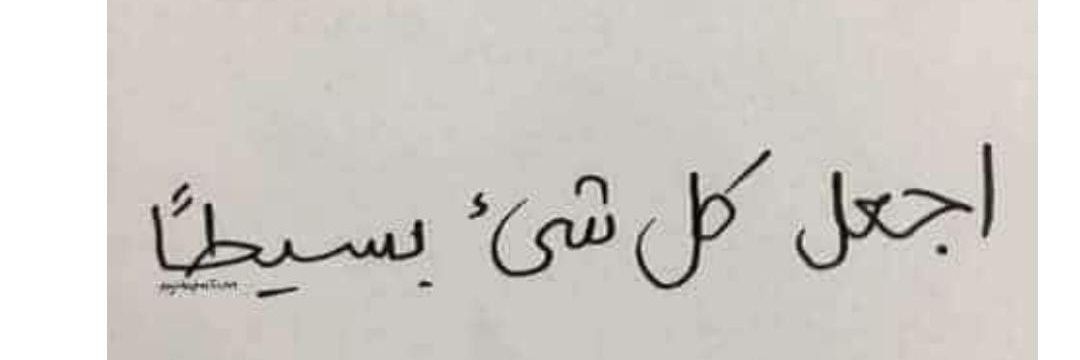 اجعل كل شئ بسيطًا